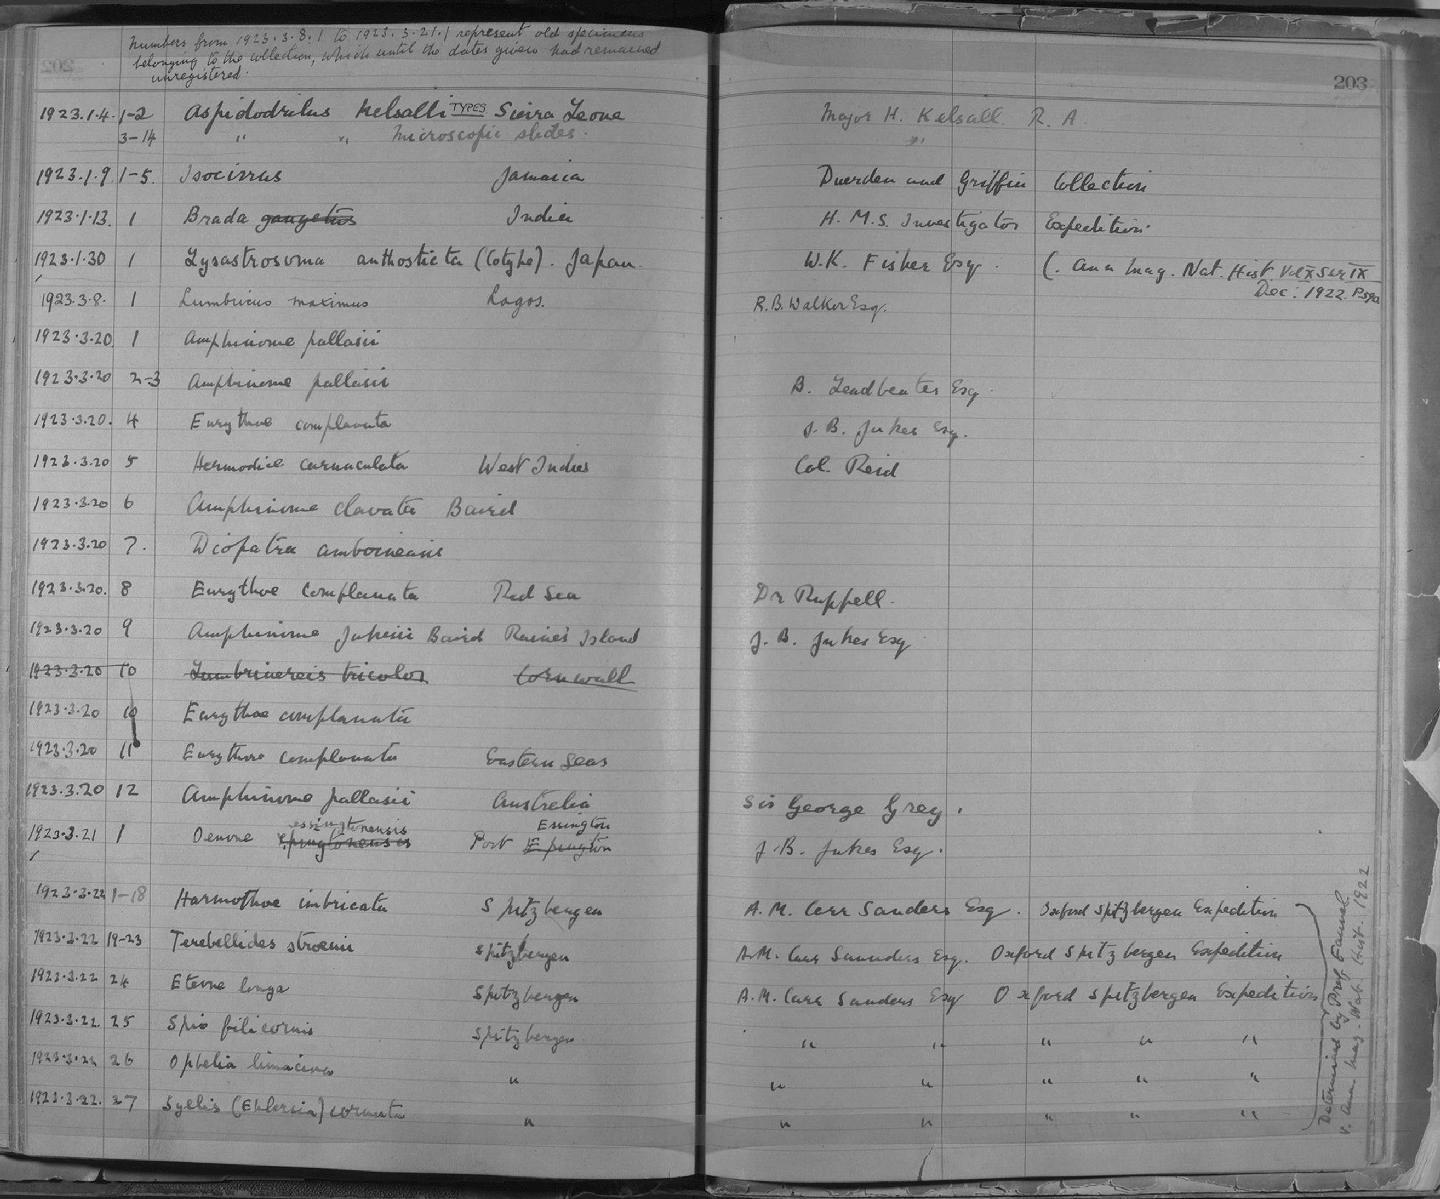 numbers from 1923.3.8.1 to 1923.3.21.1 represent old specimens
belonging to the collection, which until the dates given had remained
unregistered.
203
1923.1.4. 1-2 Aspidodrilus Kelsalli TYPES Sierra Leone Major H. Kelsall R.A.
3-14 " " Microscopic slides. "
1923.1.9 1-5. Isocirrus Jamaica Duerden and Griffin Collection
1923.1.13. 1 Brada gangetius India H.M.S. Investigator Expedition.
1923.1.30 1 Lysastrosoma anthosticta (Cotype). Japan. W.K. Fisher Esq. (. Ann Mag. Nat. Hist. Vol X Ser IX
Dec: 1922.
1923.3.8. 1 Lumbricus maximus Lagos. R.B. Walker Esq.
1923.3.20 1 Amphinome pallasii
1923.3.20 2-3 Amphinome pallasii B. Leadbeater Esq.
1923.3.20. 4 Eurythoe complanata J.B. Jukes Esq.
1923.3.20 5 Hermodice carunculata West Indies Col. Reid
1923.3.20 6 Amphinome clavata Baird
1923.3.20 7. Diopatra amboinensis
1923.3.20. 8 Eurythoe complanata Red Sea Dr Ruppell.
1923.3.20 9 Amphinome Jukesii Baird Raines Island J.B. Jukes Esq
1923.3.20 10 Lumbrinereis tricolor Cornwall
1923.3.20 10 Eurythoe complanata
1923.3.20 11 Eurythoe complanata Eastern Seas
1923.3.20 12 Amphinome pallasii Australia Sir George Grey.
essingtonensis Essington
1923.3.21 1 Oenone Port J.B. Jukes Esq.
1923.3.22 1-18 Harmothoe imbricata Spitzbergen A.M. Carr Sanders Esq. Oxford Spitzbergen Expedition
1923.3.22 19-23 Terebellides stroemi Spitzbergen A.M. Carr Saunders Esq. Oxford Spitzbergen Expedition
1923.3.22 24 Eteone longa Spitzbergen A.M. Carr Sanders Esq Oxford Spitzbergen Expedition
1923.3.22. 25 Spio filicornis Spitzbergen " " " " "
1923.3.22 26 Ophelia limacina " " " " " "
1923.3.22. 27 Syllis (Ehlersia) cornuta " " " " " "
Determined by Prof. Fauvel
v. Ann. Mag. Nat. Hist. 1922